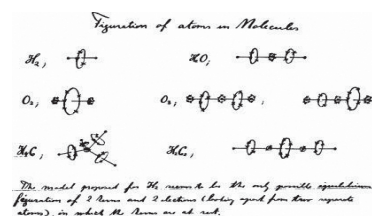 Figuration of atoms in Molecules
H₂, HO,
O₂, O₃,
H₄C, H₂C₂,
The model proposed for H₂ seems to be the only possible equilibrium
figuration of 2 Kerns and 2 electrons (looking apart from two separate
atoms), in which the Kerns are at rest.